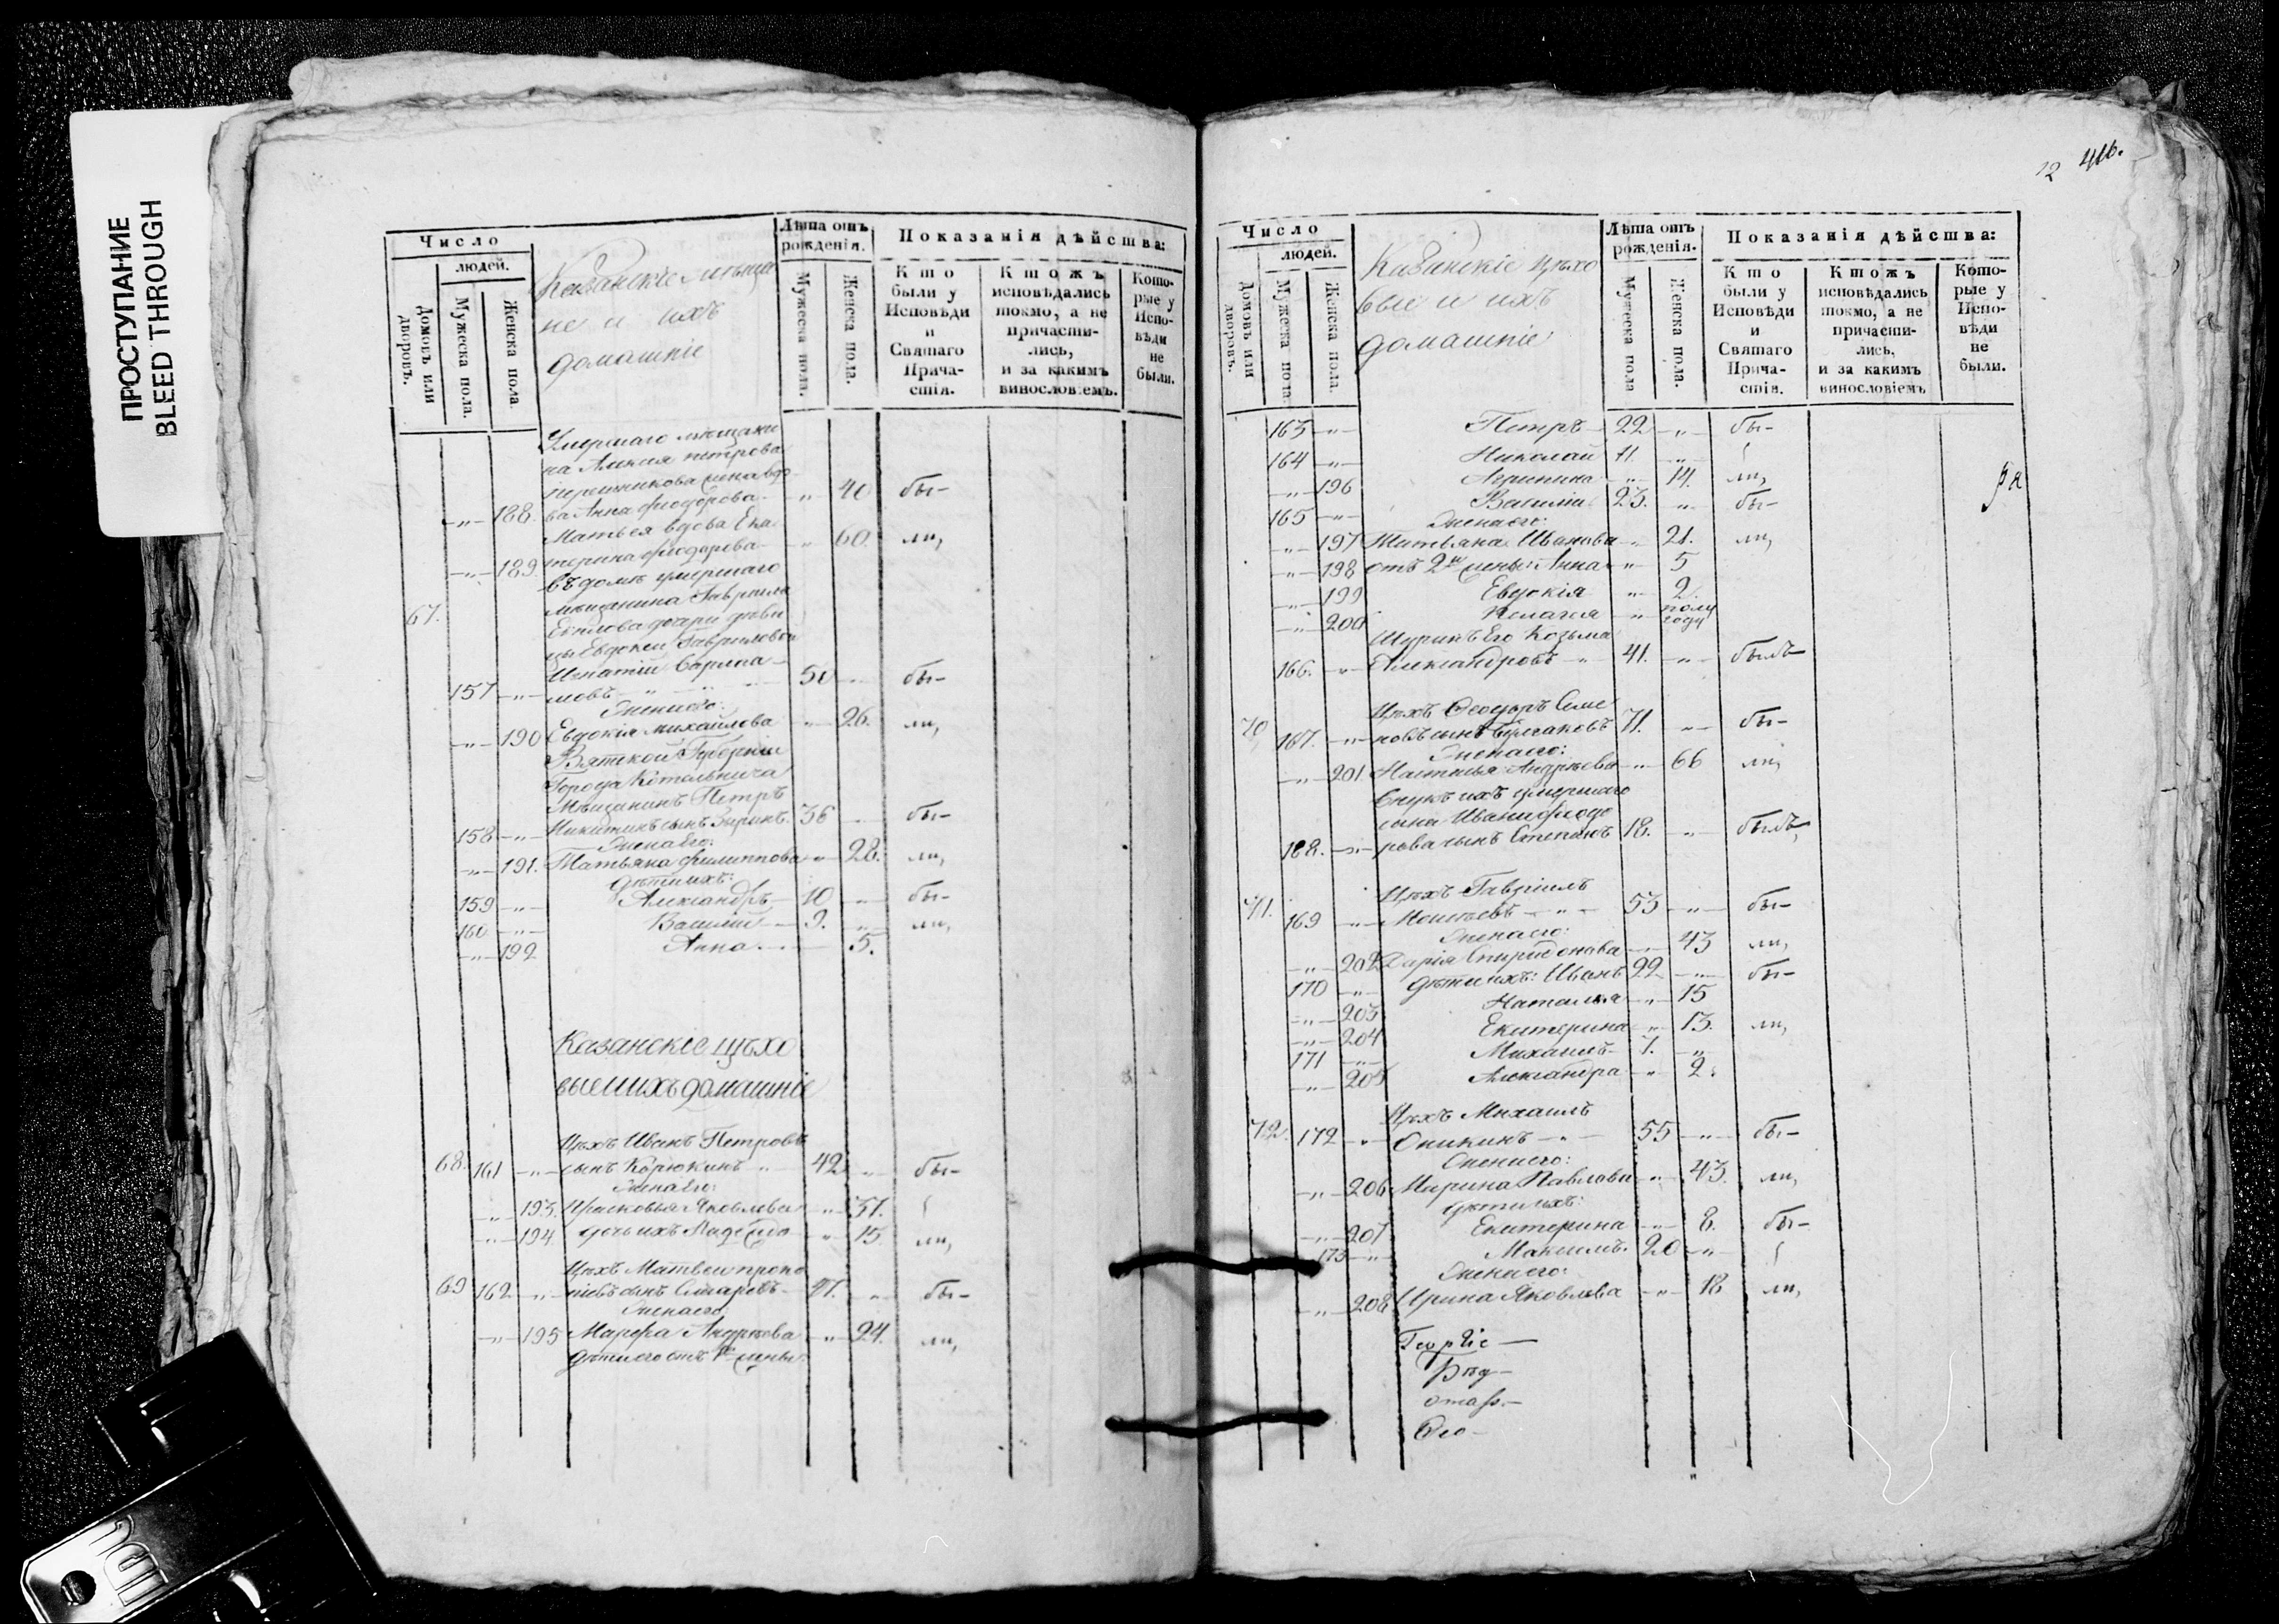 ПРОСТУПАНИЕ
BLEED THROUGH
Число
людей.
Домовъ или дворовъ.
Мужеска пола.
Женска пола.
Казанскіе мѣща
не и ихъ
домашніе
Лѣта отъ рожденія.
Мужеска пола.
Женска пола.
Показанія дѣйства:
Кто были у Исповѣди и Святаго Прича-стія.
Ктожъ исповѣдались токмо, а не причасти-лись, и за какимъ винословіемъ.
Кото-рые у Испо-вѣди не были.
Умершаго мѣщани
на Алексея петрова
жена вдо
188. ва Анна феодорова 40 бы-
Мать ея вдова Ека
189 терина феодорова 60. ли,
въ домѣ умершаго
67. мѣщанина Гавриила
дочери дѣви
цы Евдокеи Гавриловой
Игнатій Варлаа
157 мовъ 50 бы-
Жена его:
190 Евдокія Михайлова 26. ли,
Вятской Губерніи
Города Котельнича
Мѣщанинъ Петръ
158 Никитинъ сынъ Зыринъ. 36 бы-
Жена Его:
191. Татьяна филиппова 28. ли,
дѣти ихъ:
159 Александръ 10 бы-
160 Василій 9. ли,
192 Анна 5.
Казанскіе цѣхо
вые и ихъ домашніе
Цѣхъ Иванъ Петровъ
68. 161 сынъ Корюкинъ 42 бы-
Жена Его:
193. Прасковья Яковлева 37.
194 дочь ихъ Надежда 15. ли,
Цѣхъ Матвеи прокo
69 162 піевъ сынъ Старевъ 47. бы-
Жена его
195 Марфа Андреева 24. ли,
дѣти его отъ 1й жены
12 416.
Число
людей.
Домовъ или дворовъ.
Мужеска пола.
Женска пола.
Казанскіе цѣхо
вые и ихъ
домашніе
Лѣта отъ рожденія.
Мужеска пола
Женска пола.
Показанія дѣйства:
Кто были у Исповѣди и Святаго Прича-стія.
Ктожъ исповѣдались токмо, а не причасти-лись, и за какимъ винословіемъ
Кото-рые у Испо-вѣди не были.
163 Петръ 22 бы-
164 Николай 11
196 Агрипина 14. ли,
165 Василій 23. бы-
Жена его:
197 Татьяна Иванова 21. ли,
198 отъ 2й жены: Анна 5
199 Евдокія 2.
200 Пелагея полу году
Шуринъ Его Козьма
166. Александровъ 41. былъ
Цѣхъ Феодоръ Семе
70 167. новъ сынъ Булгаковъ 71. бы-
Жена его:
201 Настасья Андреева 66 ли,
Внукъ ихъ умершаго
сына Ивана феодо
188. рова сынъ Степанъ 18. былъ,
Цѣхъ Гавріилъ
71. 169 Моисеевъ 53 бы-
Жена его:
202 Дарія Спиридонова 43 ли,
170 дѣти ихъ: Иванъ 22 бы-
203 Наталья 15
204 Екатерина 13. ли,
171 Михаилъ 7.
205 Александра 2.
Цѣхъ Михаилъ
72. 172 Оникинъ 55 бы-
Жена его:
206 Марина Павлова 43. ли,
дѣти ихъ:
207 Екатерина 8. бы-
173 Максимъ. 20
Жена его:
208 Ирина Яковлева 18 ли,